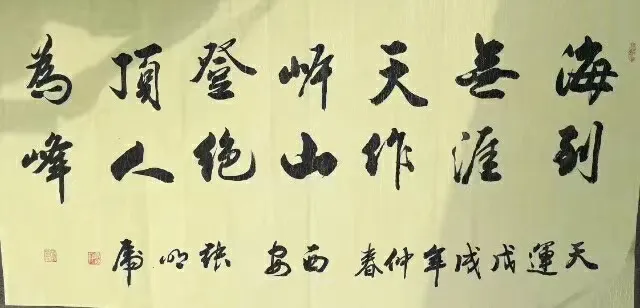 海到
無涯
天作
岸山
登绝
頂人
為峰
天運戊戌年仲春西安张明